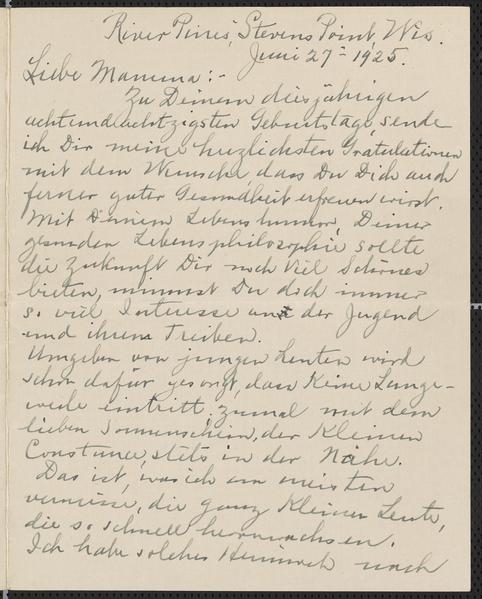 River Pines, Stevens Point, Wis.
Juni 27 - 1925.
Liebe Mamma:-
Zu Deinem diesjährigen
achtundachtzigsten Geburtstage, sende
ich Dir meine herzlichsten Gratulationen
mit dem Wunsche, dass Du Dich auch
ferner guter Gesundheit erfreuen wirst.
Mit Deinem Lebenshumor, Deiner
gesunden Lebensphilosophie sollte
die Zukunft Dir noch viel Schönes
bieten, nimmst Du doch immer
so viel Interesse an der Jugend
und ihrem Treiben.
Umgeben von jungen Leuten wird
schon dafür gesorgt, dass Keine Lange-
weile eintritt, zumal mit dem
lieben Sonnenschein, der Kleinen
Constance, stets in der Nähe.
Das ist, was ich am meisten
vermisse, die ganz Kleinen Leute,
die so schnell heranwachsen.
Ich habe solches Heimweh nach